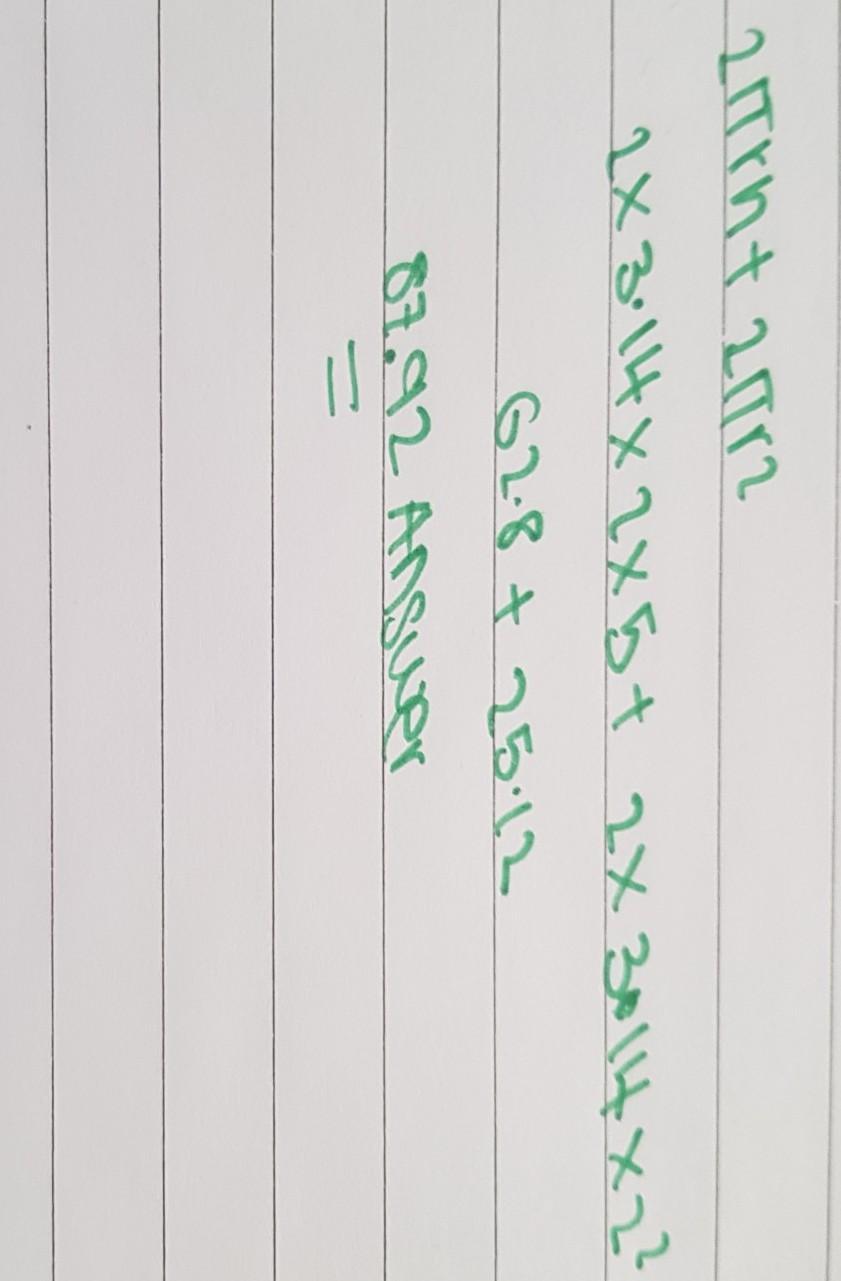 2πrh + 2πr2
2 x 3.14 x 2 x 5 + 2 x 3.14 x 2²
62.8 + 25.12
87.92 Answer